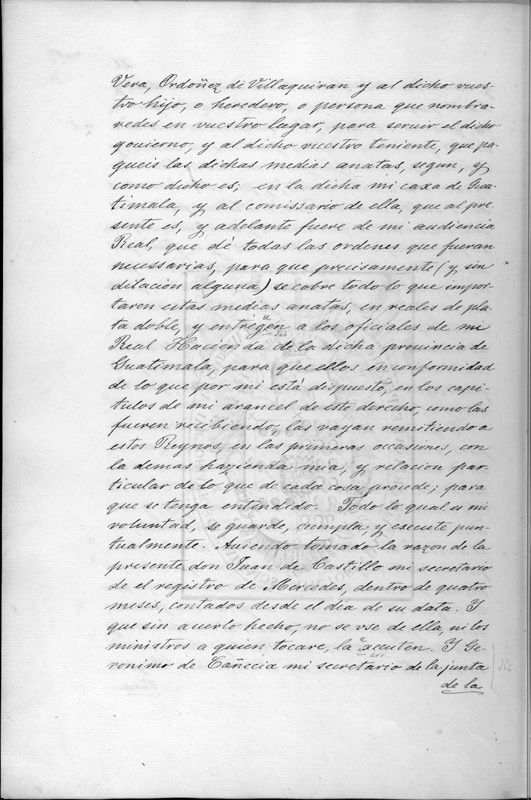 Vera, Ordoñez de Villaquiran y al dicho vues-
tro hijo, o heredero, o persona que nombra-
redes en vuestro lugar, para seruir el dicho
gouierno, y al dicho vuestro teniente, que pa-
gueis las dichas medias anatas, segun, y
como dicho es, en la dicha mi caxa de Goa-
timala, y al comissario de ella, que al pre-
sente es, y adelante fuere de mi audiencia
Real, que dé todas las ordenes que fueran
necessarias, para que precisamente (y sin
dilacion alguna) se cobre todo lo que impor-
taren estas medias anatas, en reales de pla-
ta doble, y entregen a los oficiales de mi
Real Hacienda de la dicha prouincia de
Guatimala, para que ellos en conformidad
de lo que por mi está dispuesto, en los capi-
tulos de mi arancel de este derecho, como las
fueren recibiendo, las vayan remitiendo a
estos Reynos, en las primeras occasiones, con
la demas hazienda mia, y relacion par-
ticular de lo que de cada cosa procede; para
que se tenga entendido. Todo lo qual es mi
voluntad, se guarde, cumpla y execute pun-
tualmente. Auiendo tomado la razon de la
presente don Juan de Castillo mi secretario
de el registro de Mercedes, dentro de quatro
meses, contados desde el dia de su data. Y
que sin auerlo hecho, no se vse de ella, ni los
ministros a quien tocare, la xecuten. Y Ge-
ronimo de Cañecia mi secretario de la junta
de la